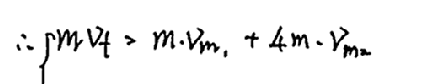 ∴ { mV₁ = m·Vm₁ + 4m·Vm₂